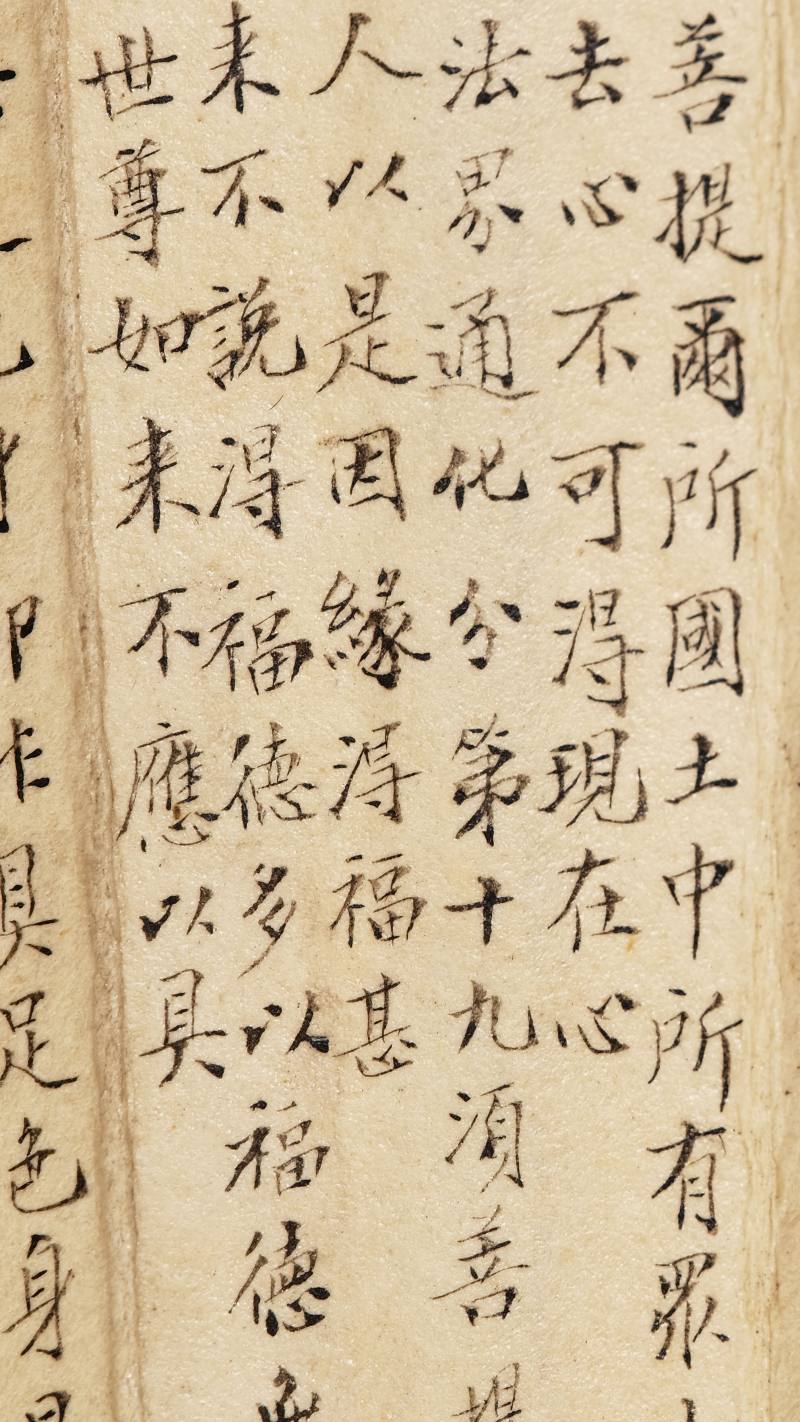 菩提爾所國土中所有眾
去心不可得現在心
法界通化分第十九須菩提
人以是因緣得福甚
来不說得福德多以福德
世尊如来不應以具
具足色身